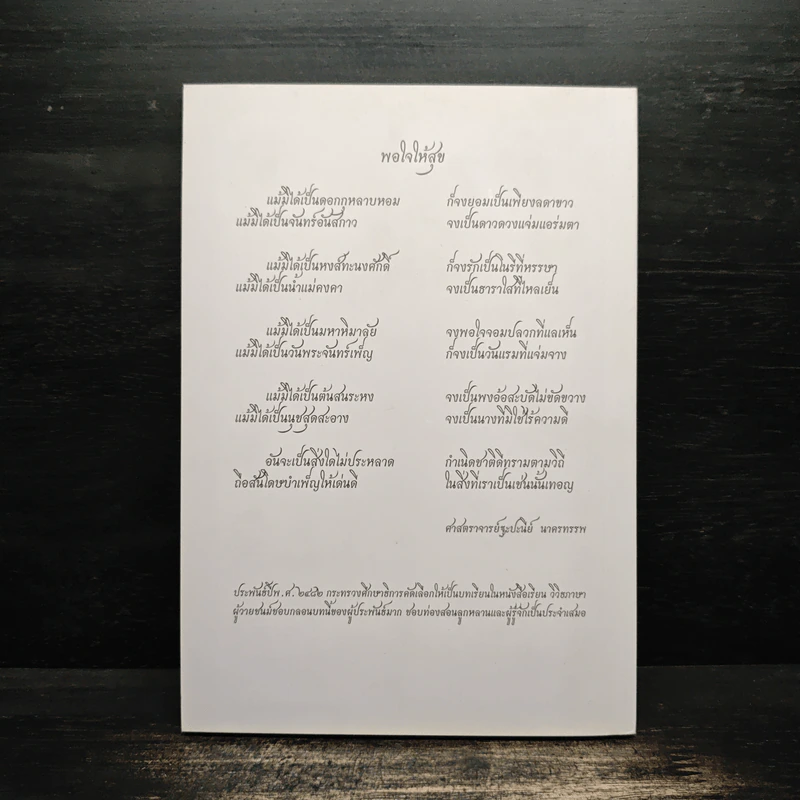 พอใจให้สุข
แม้มิได้เป็นดอกกุหลาบหอม ก็จงยอมเป็นเพียงลดาขาว
แม้มิได้เป็นจันทร์อันสกาว จงเป็นดาวดวงแจ่มแอร่มตา
แม้มิได้เป็นหงส์ทะนงศักดิ์ ก็จงรักเป็นโนรีที่หรรษา
แม้มิได้เป็นน้ำแม่คงคา จงเป็นธาราใสที่ไหลเย็น
แม้มิได้เป็นมหาหิมาลัย จงพอใจจอมปลวกที่แลเห็น
แม้มิได้เป็นวันพระจันทร์เพ็ญ ก็จงเป็นวันแรมที่แจ่มจาง
แม้มิได้เป็นต้นสนระหง จงเป็นพงอ้อสะบัดไม่ขัดขวาง
แม้มิได้เป็นนุชสุดสะอาง จงเป็นนางที่มิใช่ไร้ความดี
อันจะเป็นสิ่งใดไม่ประหลาด กำเนิดชาติดีทรามตามวิถี
ถือสันโดษบำเพ็ญให้เด่นดี ในสิ่งที่เราเป็นเช่นนั้นเทอญ
ศาสตราจารย์ฐะปะนีย์ นาครทรรพ
ประพันธ์ปีพ.ศ.๒๔๘๒ กระทรวงศึกษาธิการคัดเลือกให้เป็นบทเรียนในหนังสือเรียน วิวิธภาษา
ผู้วายชนม์ชอบกลอนบทนี้ของผู้ประพันธ์มาก ชอบท่องสอนลูกหลานและผู้รู้จักเป็นประจำเสมอ